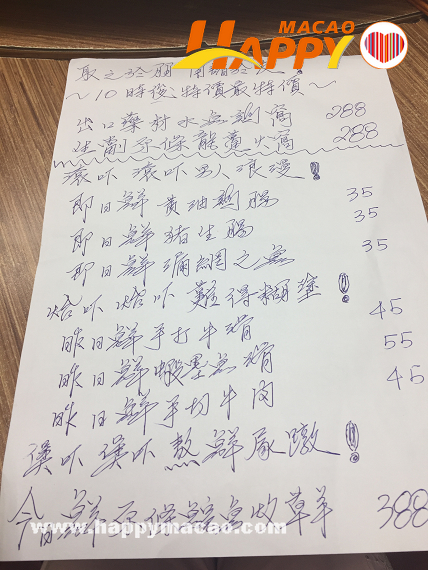 MACAO
HAPPY
取之於
~10時後特價最特價~
出口藥材水魚窩 288
生劏原條龍躉火窩 288
滾吓滾吓男人浪漫!
即日鮮黃油腸 35
即日鮮豬生腸 35
即日鮮漏網之魚 35
焓吓焓吓難得糊塗!
昨日鮮手打牛滑 45
昨日鮮蝦墨魚滑 55
昨日鮮手切牛肉 45
煲吓煲吓熬鮮
今日鮮原條草羊 388
www.happymacao.com